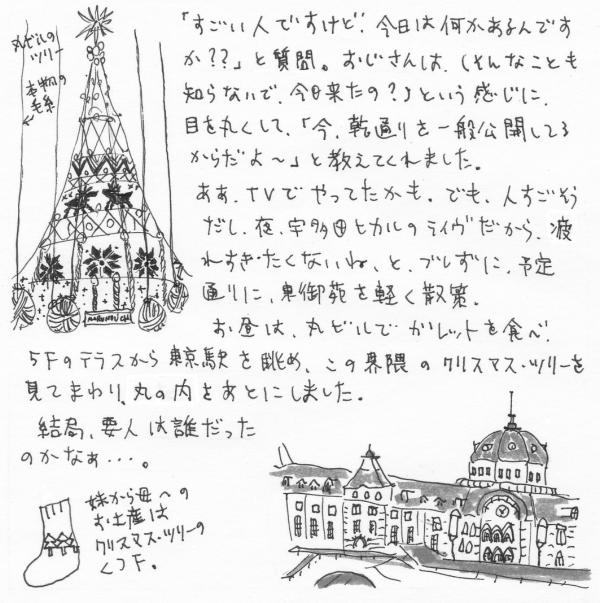 丸ビルの
ツリー
本物の
毛糸
「すごい人ですけど、今日は何かあるんです
か??」と質問。おじさんは、(そんなことも
知らないで、今日来たの?)という感じに、
目を丸くして、「今、乾通りを一般公開してる
からだよ〜」と教えてくれました。
ああ、TVでやってたかも。でも、人すごそう
だし、夜、宇多田ヒカルのライヴだから、疲
れすぎたくないね、と、ブレずに、予定
通りに、東御苑を軽く散策。
お昼は、丸ビルでガレットを食べ、
5Fのテラスから東京駅を眺め、この界隈のクリスマス・ツリーを
見てまわり、丸の内をあとにしました。
結局、要人は誰だった
のかなぁ・・・。
MARUNOUCHI
妹から母への
お土産は
クリスマス・ツリーの
くつ下。